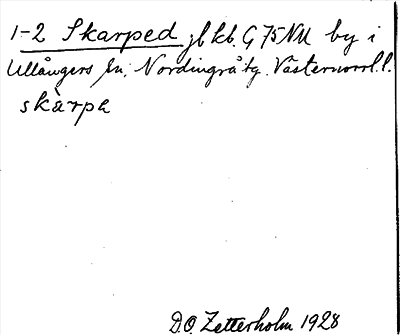 1-2 Skarped jb kb. G 75 NU by i
Ullångers sn. Nordingrå tg. Västernorrl. l.
skàrpa
D.O. Zetterholm 1928